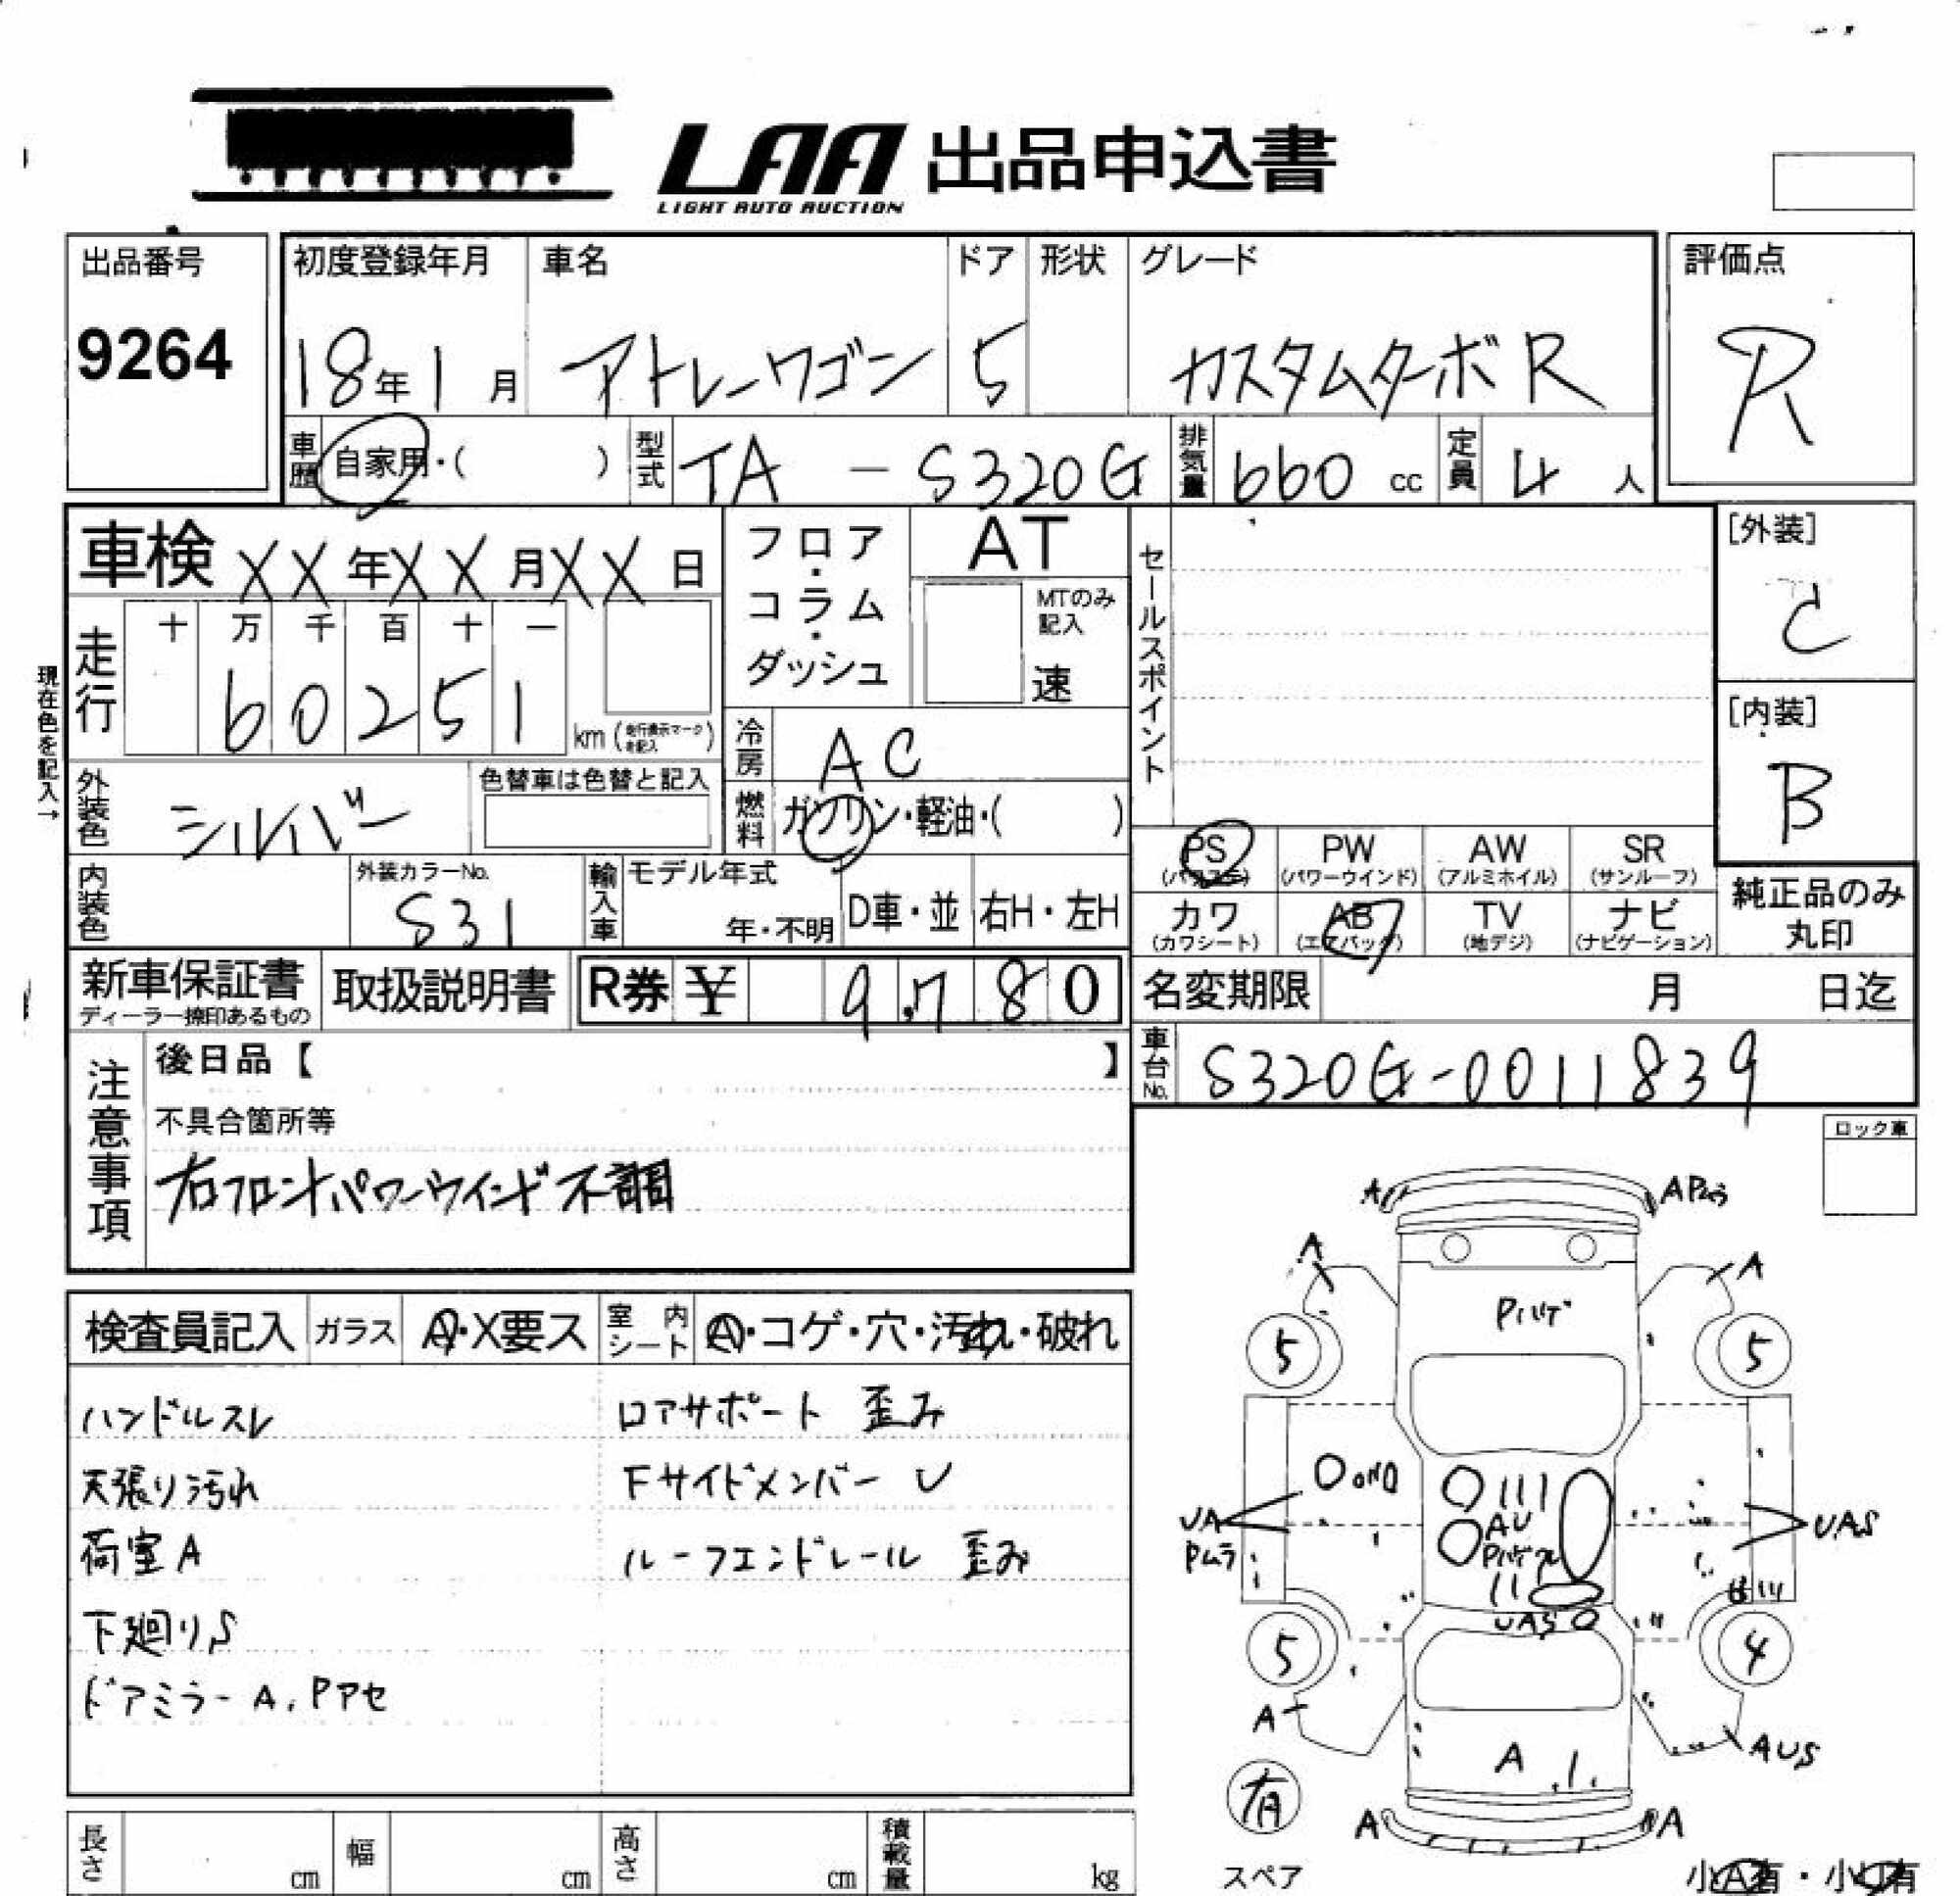 LAA 出品申込書
LIGHT AUTO AUCTION
出品番号
9264
初度登録年月
18年1月
車名
アトレーワゴン
ドア
5
形状
グレード
カスタムターボR
評価点
R
車歴
自家用・( )
型式
TA - S320G
排気量
660 cc
定員
4 人
車検 XX年XX月XX日
フロア・コラム・ダッシュ
AT
MTのみ記入
速
セールスポイント
[外装]
C
[内装]
B
現在色を記入→
走行
十 万 千 百 十 一
60251
km (走行表示マークを記入)
冷房
AC
燃料
ガソリン・軽油・( )
外装色
シルバー
色替車は色替と記入
内装色
外装カラーNo.
S31
輸入車
モデル年式
年・不明
D車・並
右H・左H
PS (パワステ)
PW (パワーウインド)
AW (アルミホイル)
SR (サンルーフ)
カワ (カワシート)
AB (エアバッグ)
TV (地デジ)
ナビ (ナビゲーション)
純正品のみ丸印
新車保証書
ディーラー捺印あるもの
取扱説明書
R券 ¥ 9,780
名変期限 月 日迄
車台No.
S320G-0011839
注意事項
後日品【 】
不具合箇所等
右フロントパワーウインド不調
ロック車
検査員記入
ガラス
A・X要ス
室内シート
A・コゲ・穴・汚れ・破れ
ハンドルスレ
ロアサポート 歪み
天張り汚れ
Fサイドメンバー U
荷室A
ルーフエンドレール 歪み
下廻りS
ドアミラーA.Pアセ
A
APムラ
A
A
Pハゲ
5
5
UA
Pムラ
AU
UAS
UAS
5
4
A
AUS
A
A
A
有
スペア
小A有・小U有
長さ cm
幅 cm
高さ cm
積載量 kg